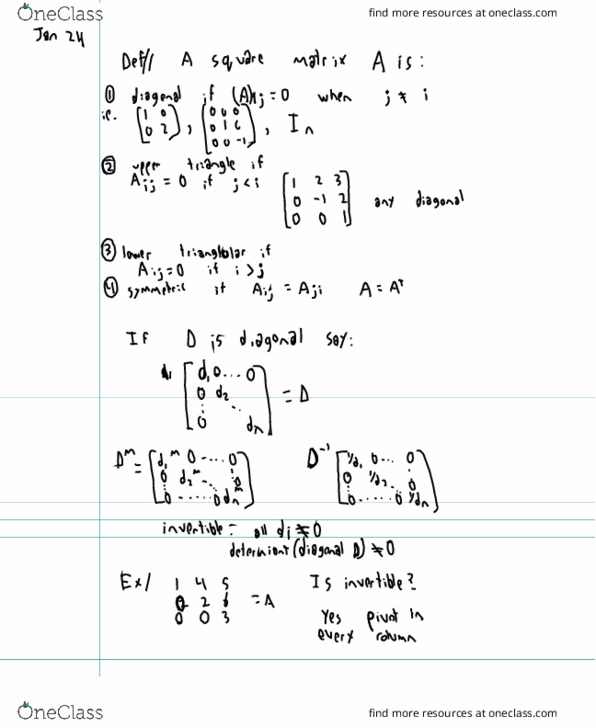 OneClass
find more resources at oneclass.com
Jan 24
Def// A square matrix A is:
① diagonal if (A)ij = 0 when j ≠ i
ie. [1 0
0 2], [0 0 0
0 1 0
0 0 -1], In
② upper triangle if
Aij = 0 if j < i [1 2 3
0 -1 2
0 0 1] any diagonal
③ lower if
Aij = 0 if i > j
④ symmetric if Aij = Aji A = Aᵀ
If D is diagonal say:
[d, 0 ... 0
0 d2
: ..
0 dn] = D
Dᵐ = [d,ᵐ 0 ---- 0
0 d2ᵐ -.
0 ------ 0 dn] D⁻¹ [1/d, 0 ... 0
0 1/d2 . 0
0 ..... 0 1/dn]
invertible = all di ≠ 0
(diagonal D) ≠ 0
Ex/ 1 4 5 Is invertible?
0 2 6 = A
0 0 3 Yes pivot in
every column
OneClass
find more resources at oneclass.com